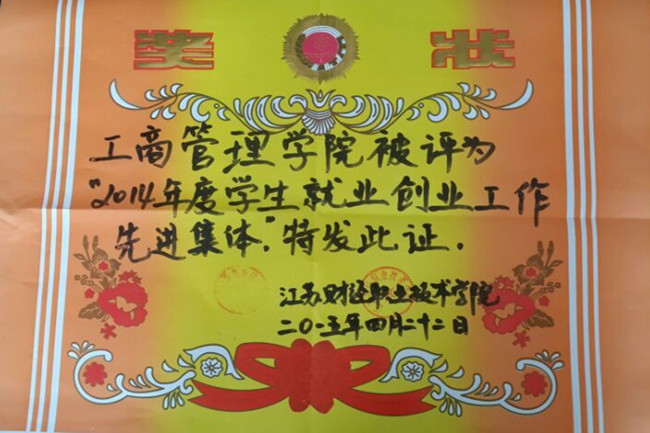 奖状
工商管理学院被评为
“2014年度学生就业创业工作
先进集体”,特发此证.
江苏财经职业技术学院
二〇一五年四月二十二日